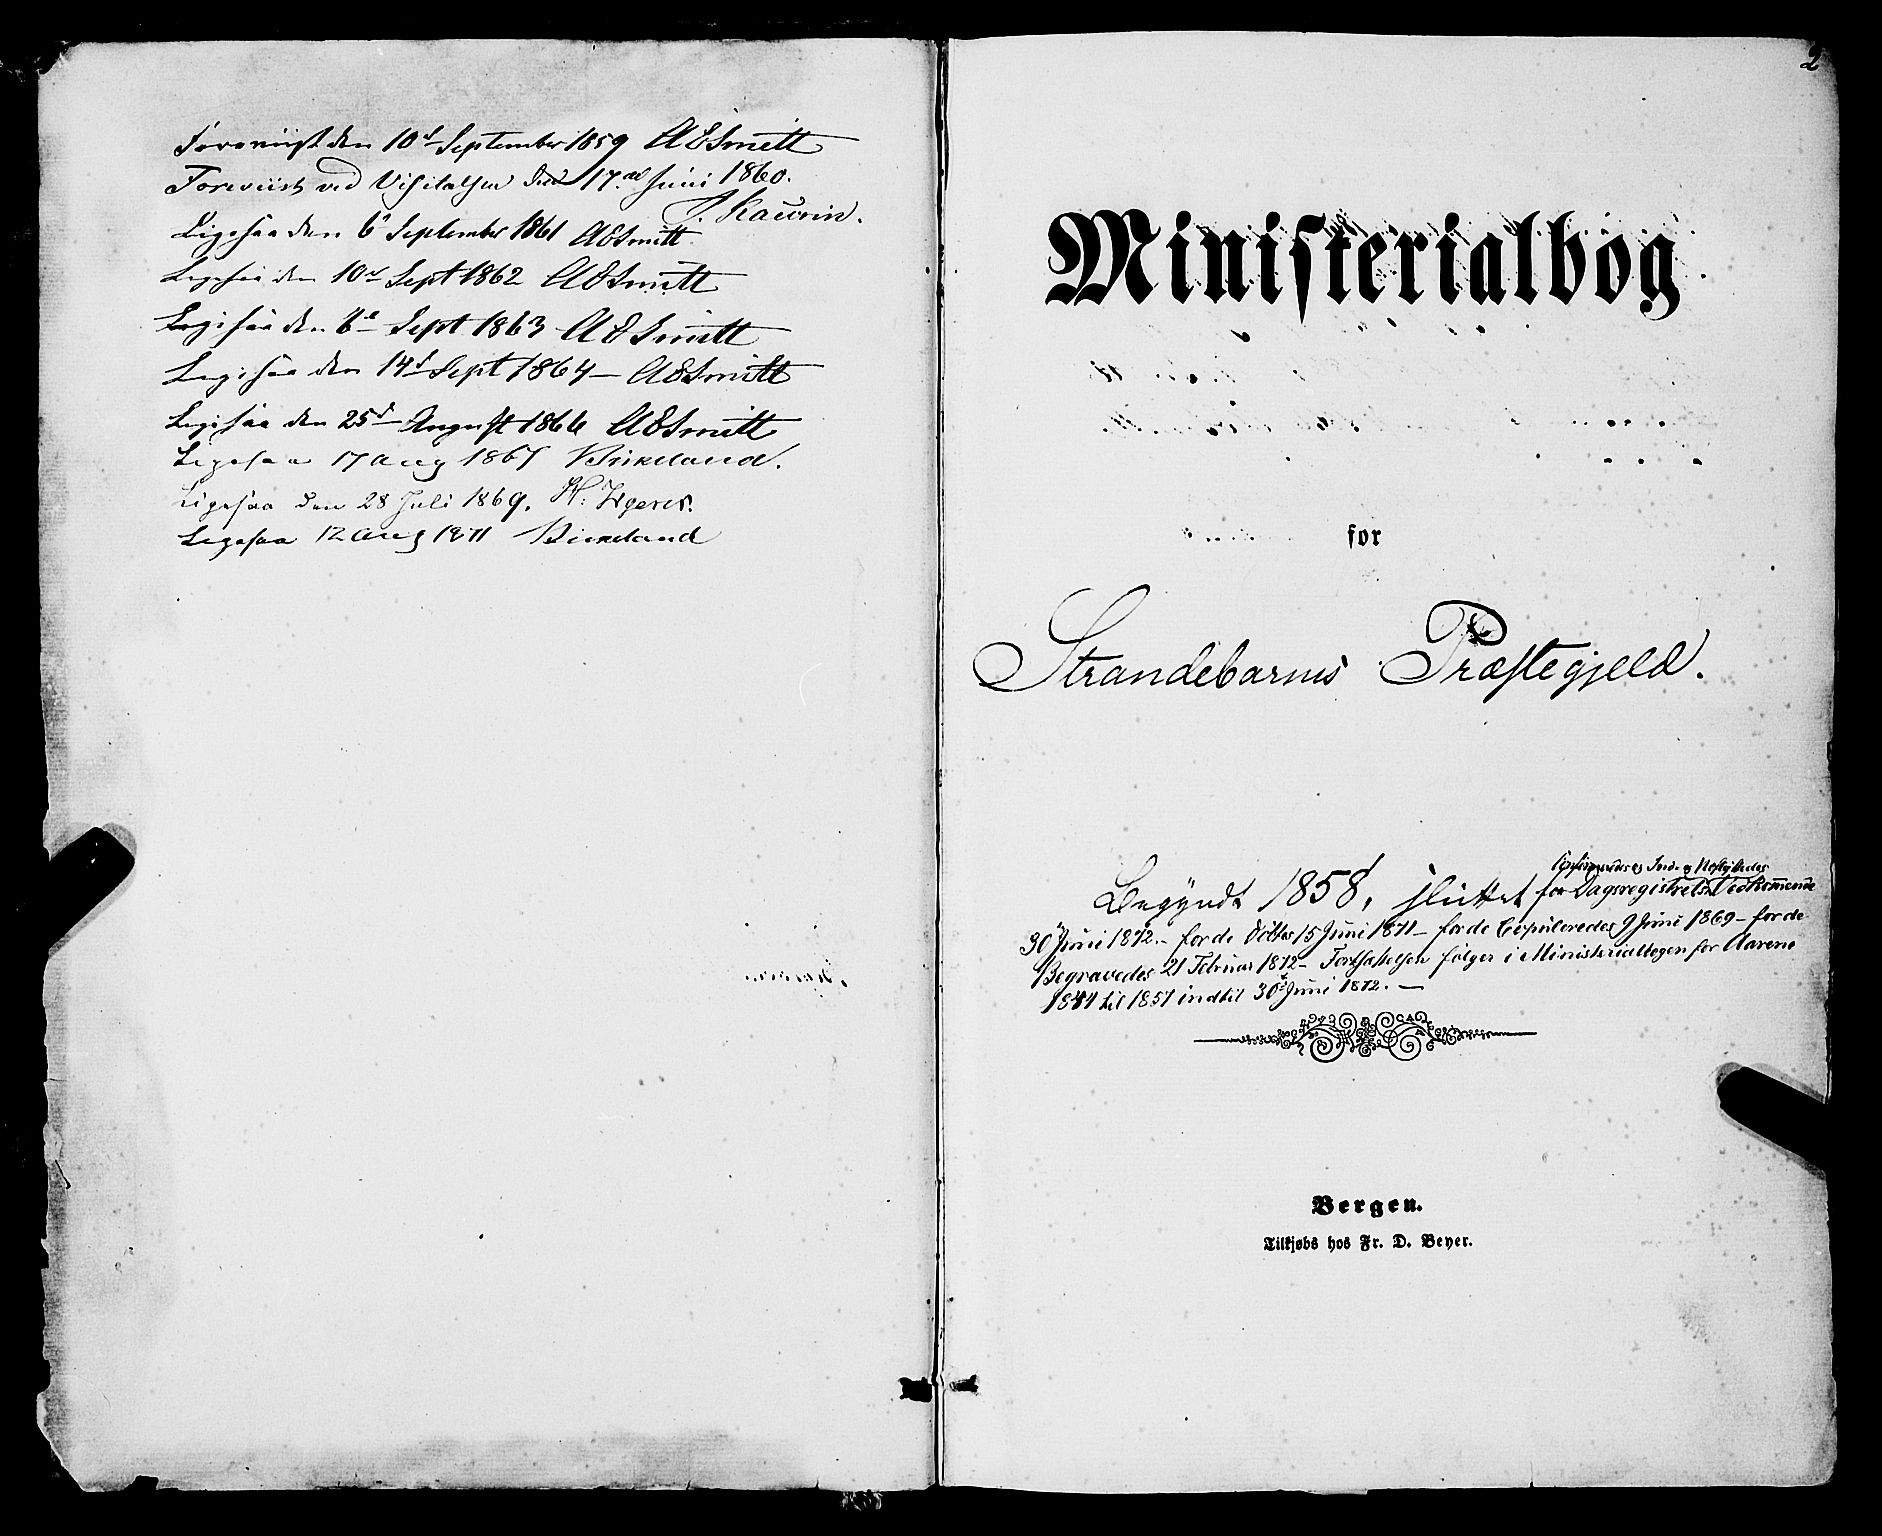 Foreviist den 10d September 1859 AESmitt
Foreviist ved Visitatsen den 17de Juni 1860.
J. Kaurin.
Ligesaa den 6d September 1861 AESmitt
Ligesaa den 10d Sept 1862 AESmitt
Ligesaa den 8d Sept 1863 AESmitt
Ligesaa den 14d Sept 1864 – AESmitt
Ligesaa den 25d August 1866 AESmitt
Ligesaa 17 Aug 1867 Birkeland.
Ligesaa den 28 Juli 1869. H:
Ligesaa 12 Aug 1871 Birkeland
2
Ministerialbog
for
Strandebarms Præstegjeld.
Confirmeredes og Ind- og Udflyttedes
Begyndt 1858, sluttet for Dagsregistrets Vedkommende
30 Juni 1872. – for de Døbte 15 Juni 1871 – for de Copuleredes 9 Juni 1869 – for de
Begravedes 21 Februar 1872 – Fortsættelsen følger i Ministerialbogen for Aarene
1844 til 1857 indtil 30te Juni 1872. –
Bergen.
Tilkjøbs hos Fr. D. Beyer.